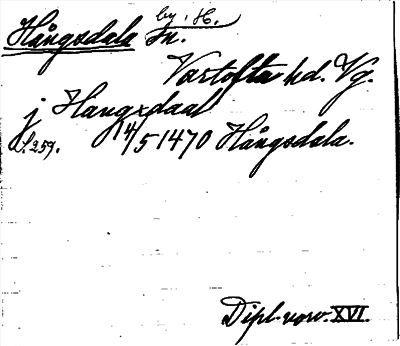 by i H.
Hångsdala Sn.
Vartofta hd. Vg.
j Hangxdaal
S. 259. 14/5 1470 Hångsdala.
Dipl. vow. XVI.